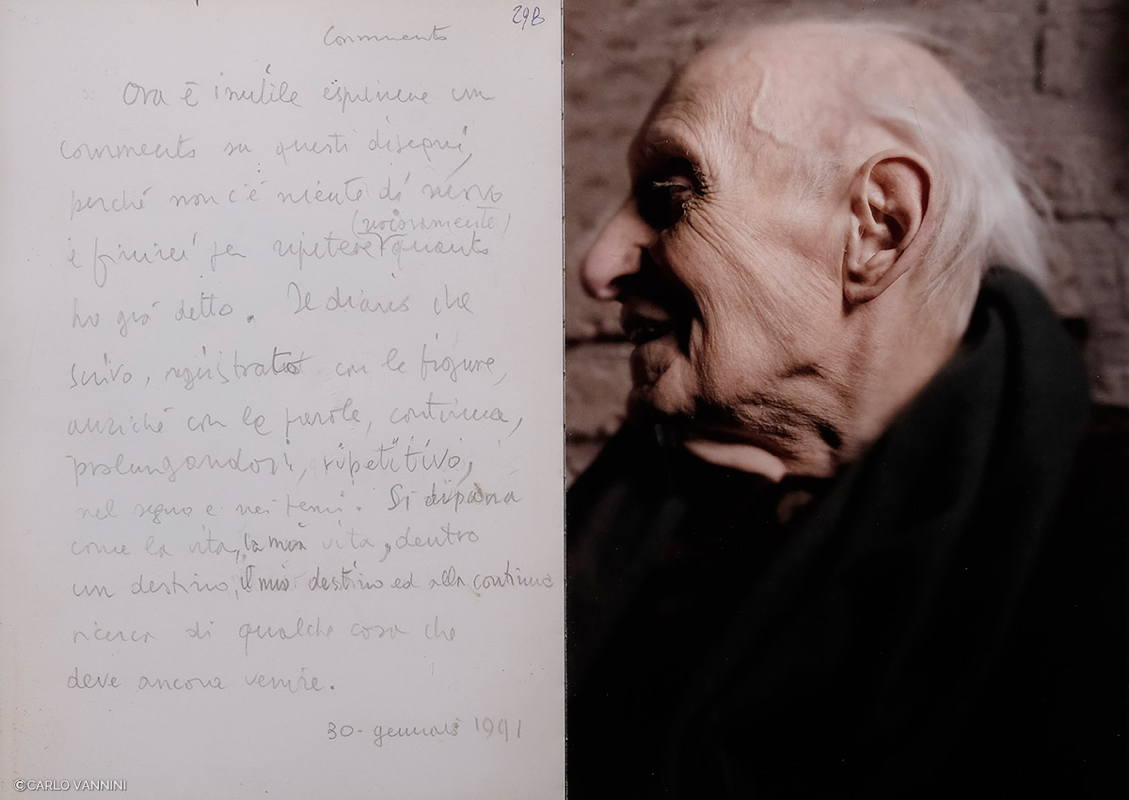 29B
Commento
Ora è inutile esprimere un
commento su questi disegni,
perché non c'è niente di nuovo
(noiosamente)
e finirei per ripetere quanto
ho già detto. Il diario che
scrivo, registrato con le figure,
anziché con le parole, continua,
prolungandosi, ripetitivo,
nel segno e nei temi. Si dipana
come la vita, la mia vita, dentro
un destino, il mio destino ed alla continua
ricerca di qualche cosa che
deve ancora venire.
30-gennaio 1991
© CARLO VANNINI